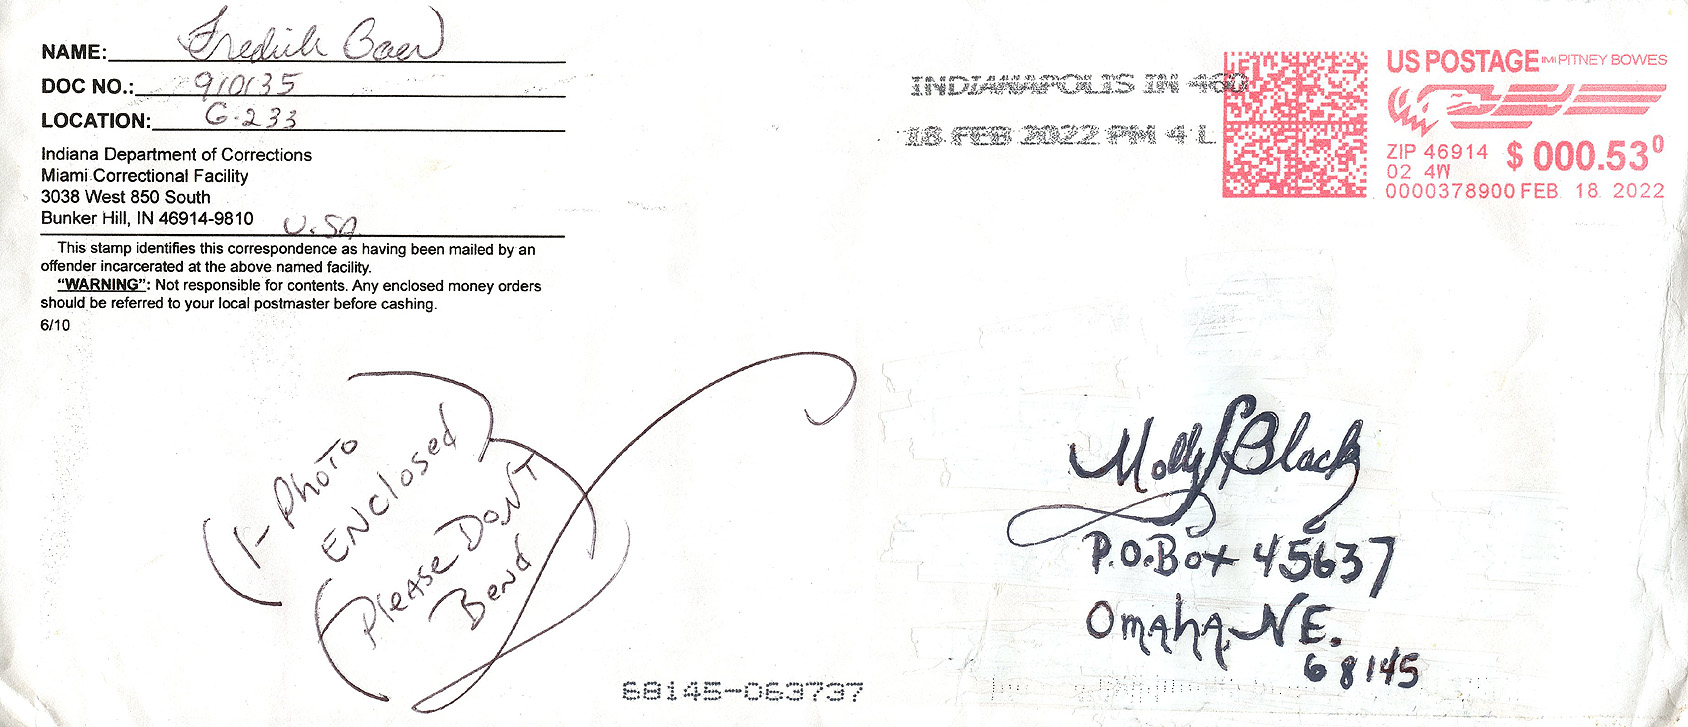 NAME: Fredrick Baer
DOC NO.: 910135
LOCATION: G-233
Indiana Department of Corrections
Miami Correctional Facility
3038 West 850 South
Bunker Hill, IN 46914-9810 U.SA
This stamp identifies this correspondence as having been mailed by an
offender incarcerated at the above named facility.
"WARNING": Not responsible for contents. Any enclosed money orders
should be referred to your local postmaster before cashing.
6/10
INDIANAPOLIS IN 460
18 FEB 2022 PM 4 L
US POSTAGE IMI PITNEY BOWES
ZIP 46914 $ 000.53⁰
02 4W
0000378900 FEB. 18. 2022
1-Photo
ENClosed
Please DON'T
Bend
Molly Black
P.O.Box 45637
Omaha, NE.
68145
68145-063737